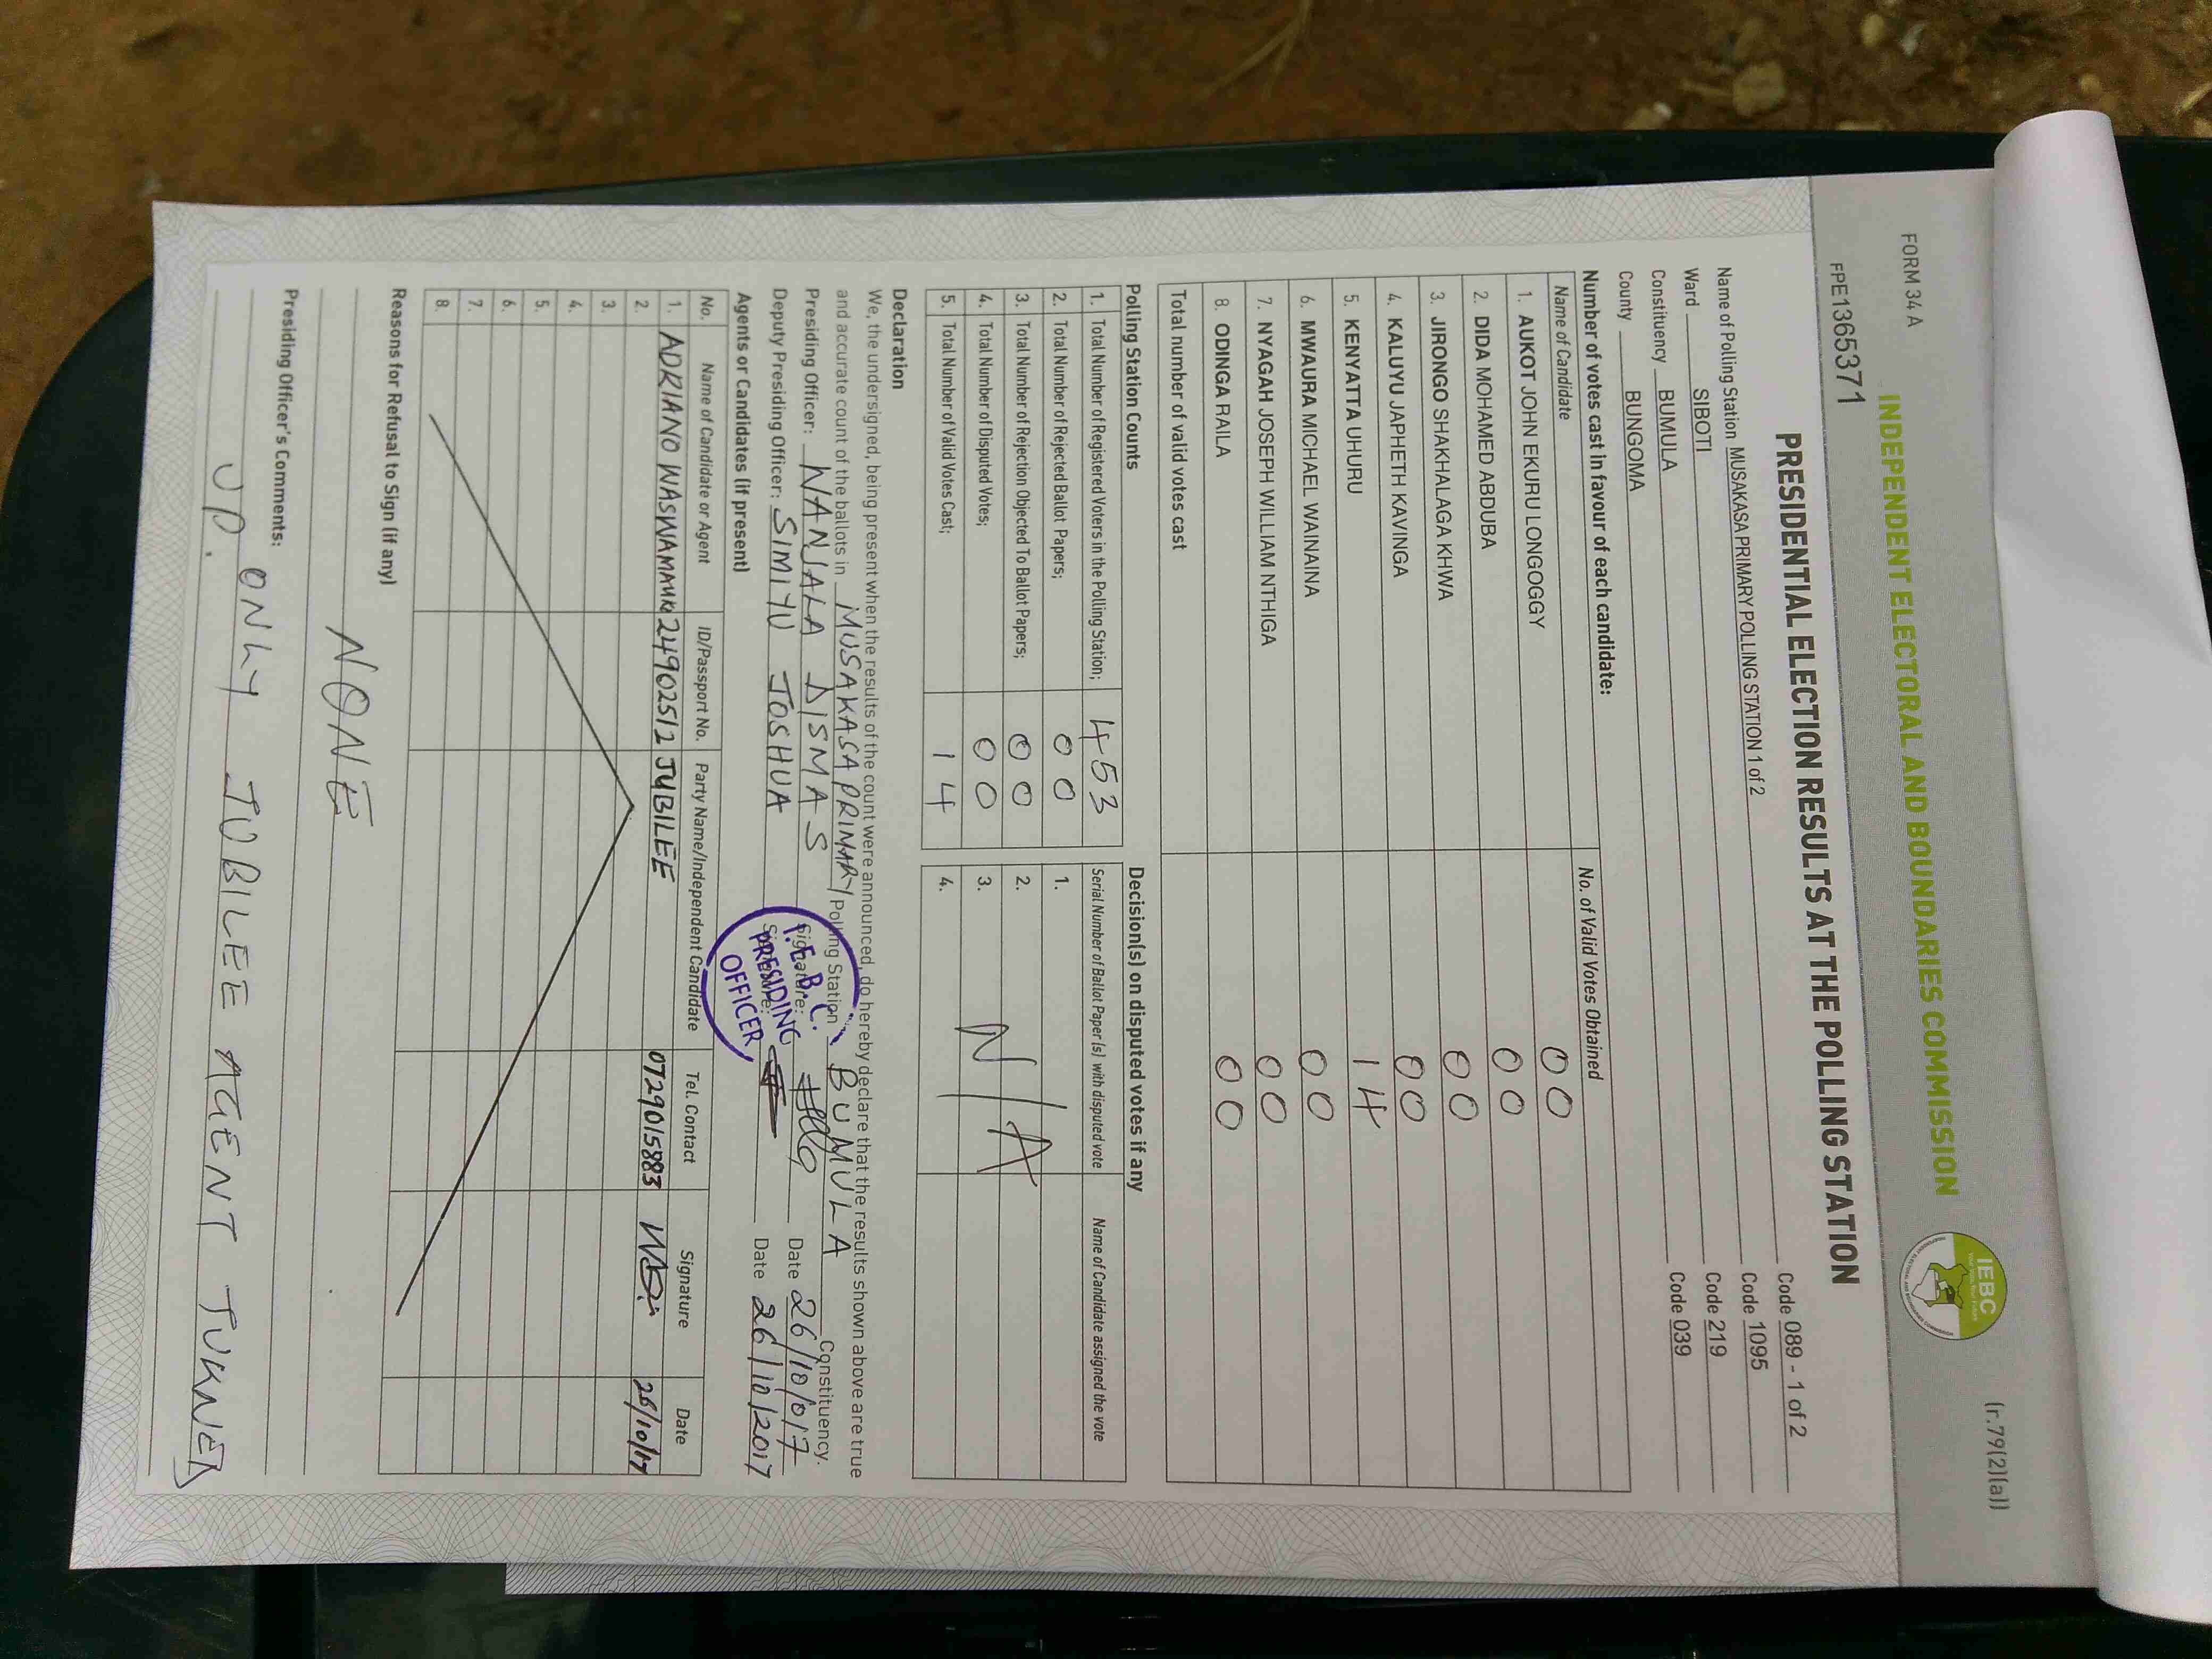 FORM 34 A
(r.79(2)(a))
INDEPENDENT ELECTORAL AND BOUNDARIES COMMISSION
IEBC
FPE1365371
PRESIDENTIAL ELECTION RESULTS AT THE POLLING STATION
Name of Polling Station MUSAKASA PRIMARY POLLING STATION 1 of 2 Code 089 - 1 of 2
Ward SIBOTI Code 1095
Constituency BUMULA Code 219
County BUNGOMA Code 039
Number of votes cast in favour of each candidate:
Name of Candidate No. of Valid Votes Obtained
1. AUKOT JOHN EKURU LONGOGGY 00
2. DIDA MOHAMED ABDUBA 00
3. JIRONGO SHAKHALAGA KHWA 00
4. KALUYU JAPHETH KAVINGA 00
5. KENYATTA UHURU 14
6. MWAURA MICHAEL WAINAINA 00
7. NYAGAH JOSEPH WILLIAM NTHIGA 00
8. ODINGA RAILA 00
Total number of valid votes cast
Polling Station Counts Decision(s) on disputed votes if any
1. Total Number of Registered Voters in the Polling Station; 453 Serial Number of Ballot Paper(s) with disputed vote Name of Candidate assigned the vote
2. Total Number of Rejected Ballot Papers; 00 1.
3. Total Number of Rejection Objected To Ballot Papers; 00 2.
4. Total Number of Disputed Votes; 00 3. N/A
5. Total Number of Valid Votes Cast; 14 4.
Declaration
We, the undersigned, being present when the results of the count were announced, do hereby declare that the results shown above are true
and accurate count of the ballots in MUSAKASA PRIMARY Polling Station BUMULA Constituency.
Presiding Officer: WANJALA DISMAS Signature: Date 26/10/017
Deputy Presiding Officer: SIMIYU JOSHUA Signature: Date 26/10/2017
I.E.B.C.
PRESIDING
OFFICER
Agents or Candidates (if present)
No. Name of Candidate or Agent ID/Passport No. Party Name/Independent Candidate Tel. Contact Signature Date
1. ADRIANO 24902512 JUBILEE 0729015883 26/10/17
2.
3.
4.
5.
6.
7.
8.
Reasons for Refusal to Sign (if any)
NONE
Presiding Officer's Comments:
ONLY JUBILEE AGENT TURNED
UP.